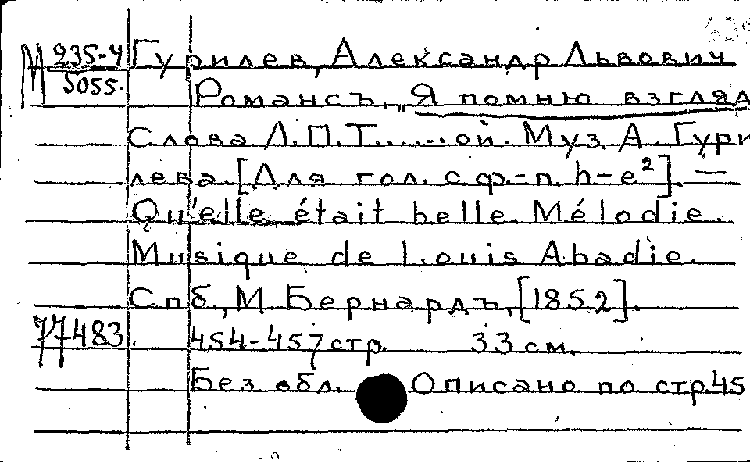 М 235-4 Гурилев, Александр Львович
5055. Романсъ. "Я помню взгляд
Слова Л.П.Т......ой. Муз. А. Гури
лева. [Для гол. с ф.-п. h-e²]. —
Qu'elle était belle. Mélodie.
Musique de Louis Abadie.
Спб., М. Бернардъ, [1852].
77483 454-457 стр. 33 см.
Без обл. Описано по стр. 45